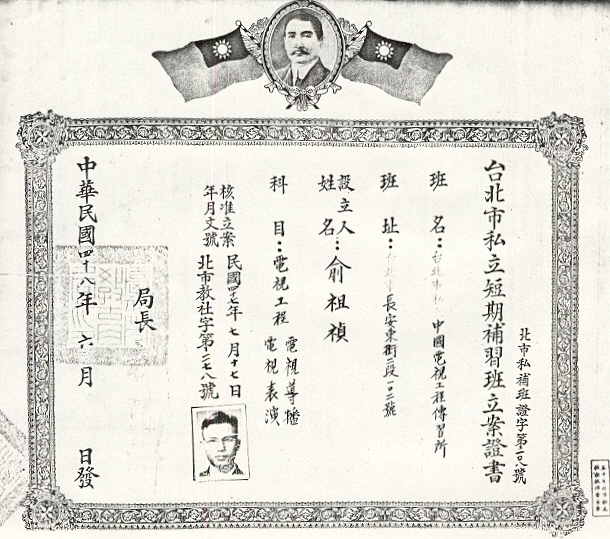 台北市私立短期補習班立案證書
北市私補班證字第一〇八號
班名：台北市私 中國電視工程傳習所
班址：台北市長安東街二段一〇二號
設立人
姓名：俞祖禎
科目：電視工程 電視導播
電視表演
核准立案
年月文號
民國四七年七月十七日
北市教社字第二七八號
局長
中華民國四十八年六月 日發